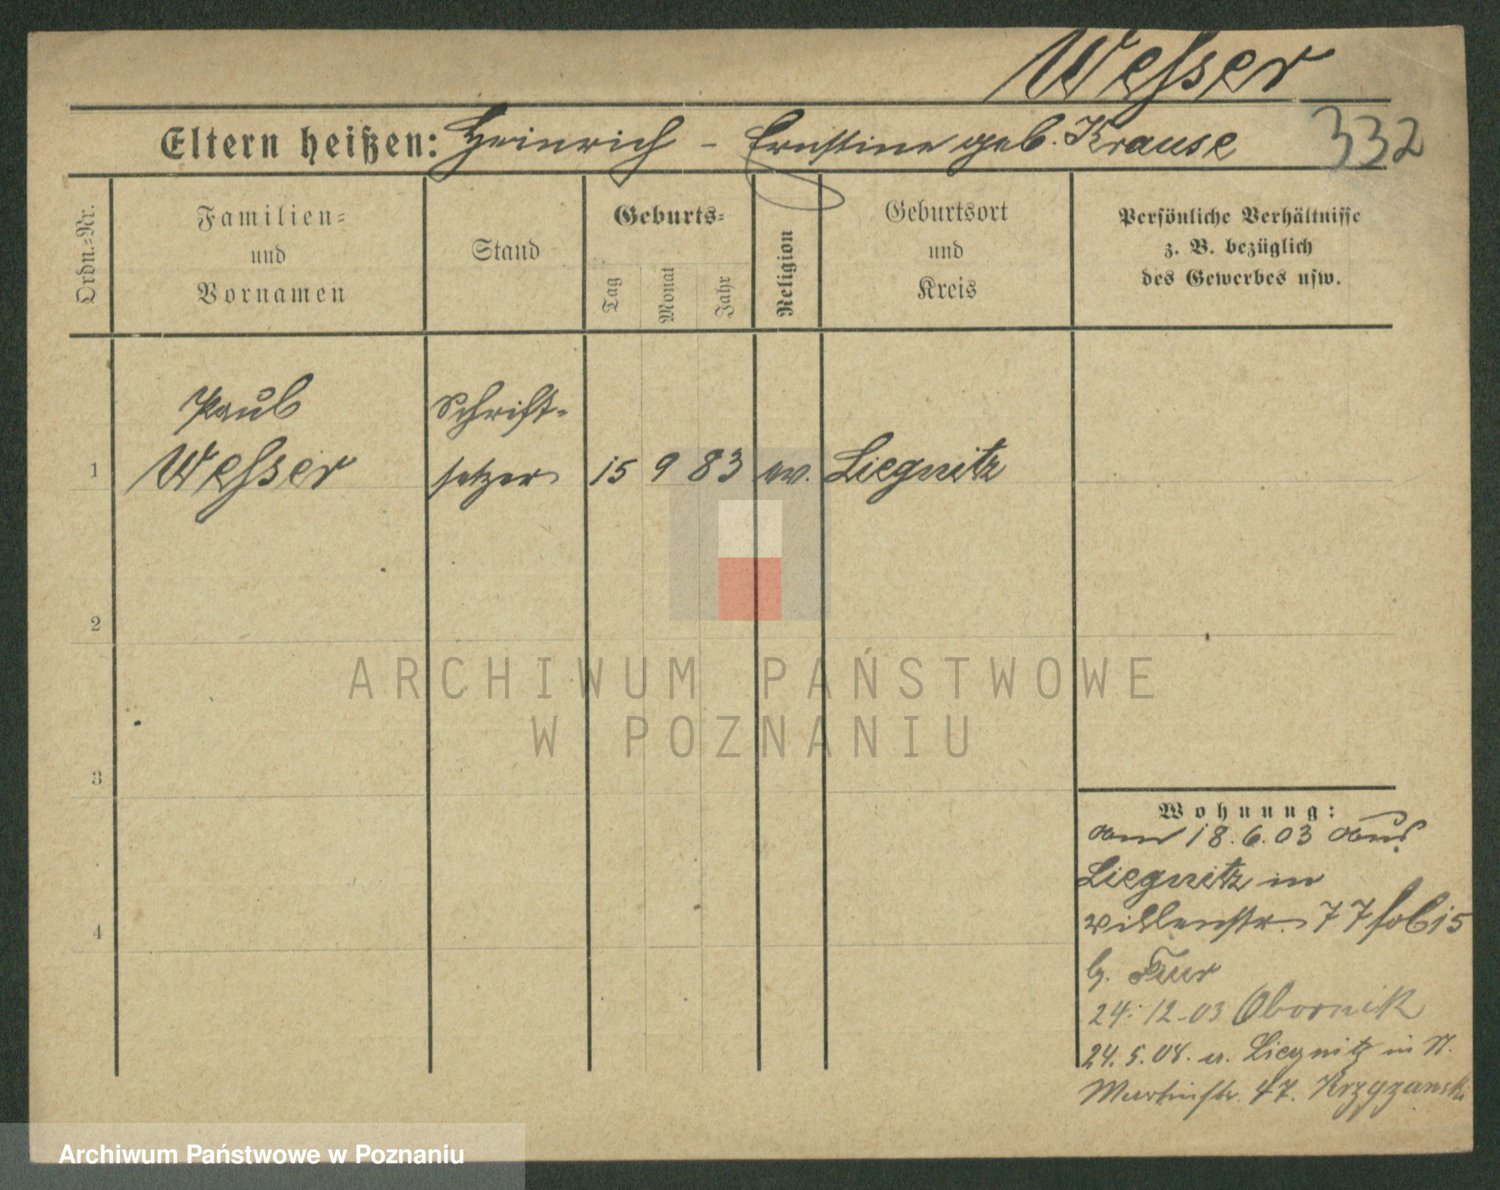 Wesser
Eltern heißen: Heinrich - Ernstine geb. Krause 332
Ordn.-Nr.
Familien-
und
Vornamen
Stand
Geburts-
Tag
Monat
Jahr
Religion
Geburtsort
und
Kreis
Persönliche Verhältnisse
z. B. bezüglich
des Gewerbes usw.
Paul Schrift-
1 Wesser setzer 15 9 83 ev. Liegnitz
2
3
4
Wohnung:
am 18.6.03 aus
Liegnitz in
77
b.
24.12.03 Obornik
24.5.04. a. Liegnitz in St.
Martinstr. 47. Krzyzanski
ARCHIWUM PAŃSTWOWE
W POZNANIU
Archiwum Państwowe w Poznaniu